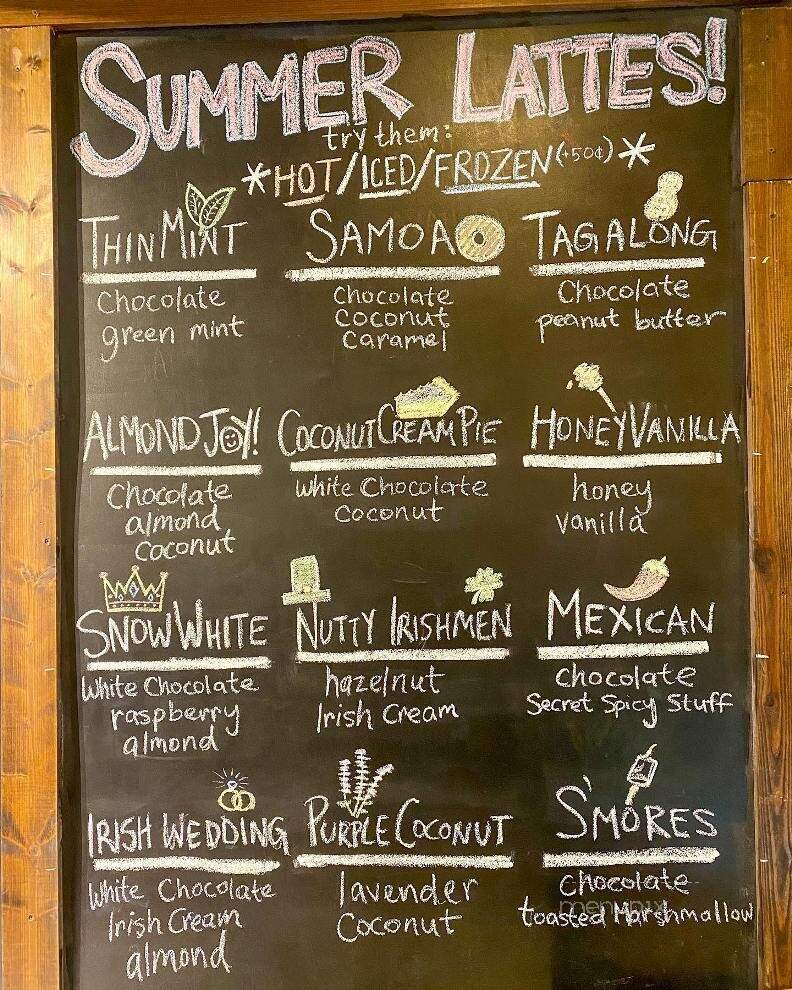 SUMMER LATTES!
try them:
*HOT/ICED/FROZEN (+50¢)*
THIN MINT
Chocolate
green mint
SAMOA
Chocolate
coconut
caramel
TAGALONG
Chocolate
peanut butter
ALMOND JOY!
Chocolate
almond
coconut
COCONUT CREAM PIE
White Chocolate
coconut
HONEY VANILLA
honey
vanilla
SNOW WHITE
White Chocolate
raspberry
almond
NUTTY IRISHMEN
hazelnut
Irish Cream
MEXICAN
chocolate
Secret Spicy Stuff
IRISH WEDDING
White Chocolate
Irish Cream
almond
PURPLE COCONUT
lavender
Coconut
S'MORES
Chocolate
toasted Marshmallow
menupix